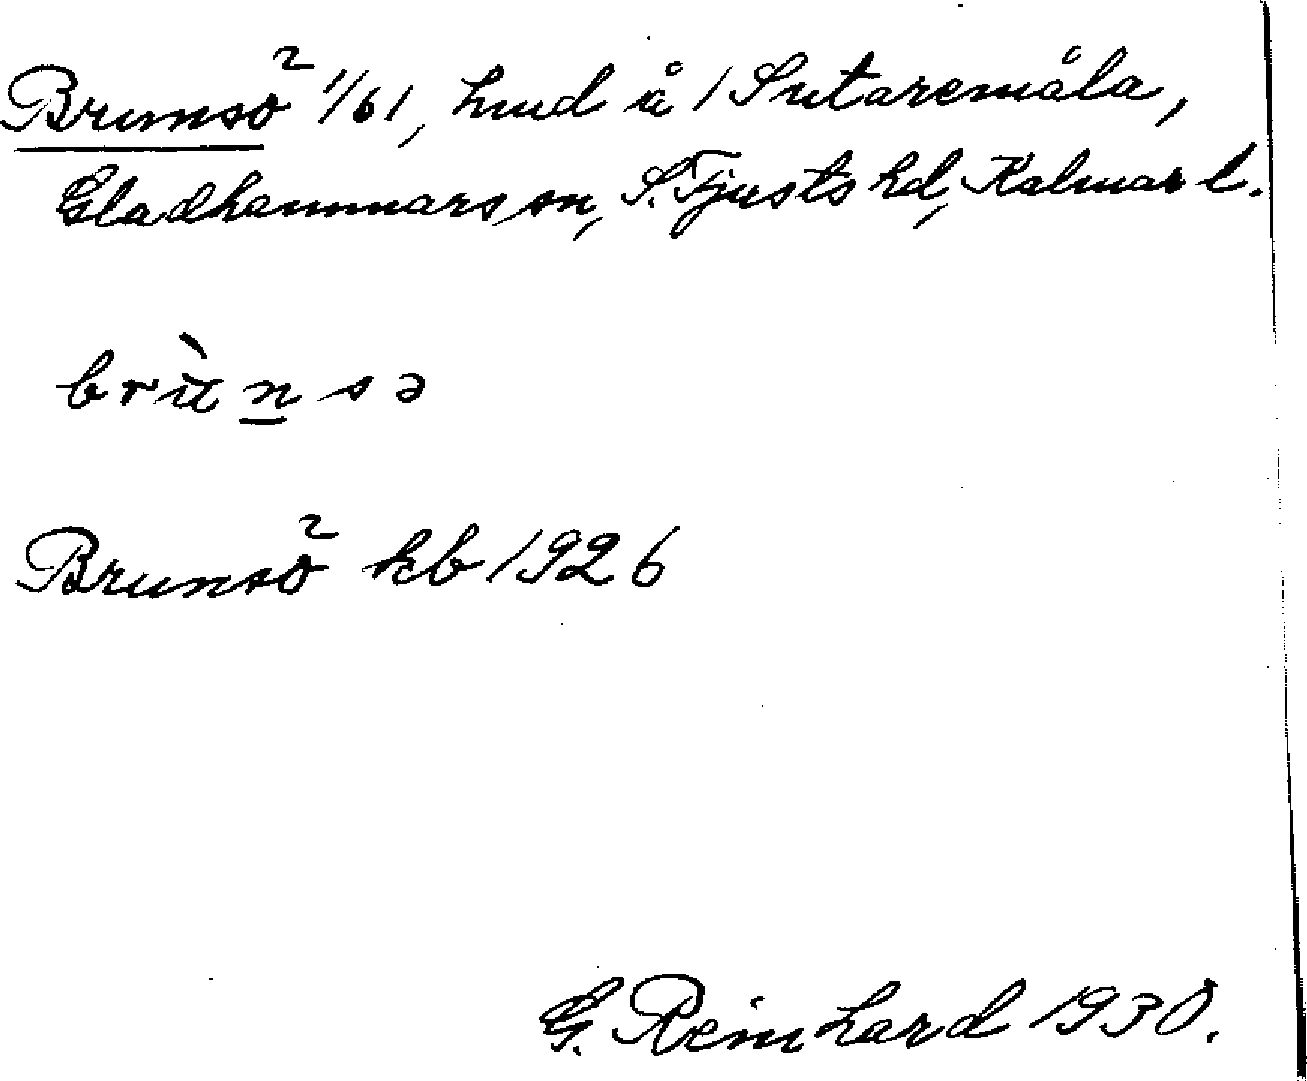 Brunsö 1/61, lund å 1 Sutaremåla,
Gladhammars sn, S. Tjusts hd, Kalmar l.
brùnsə
Brunsö kb 1926
G. Reinhard 1930.